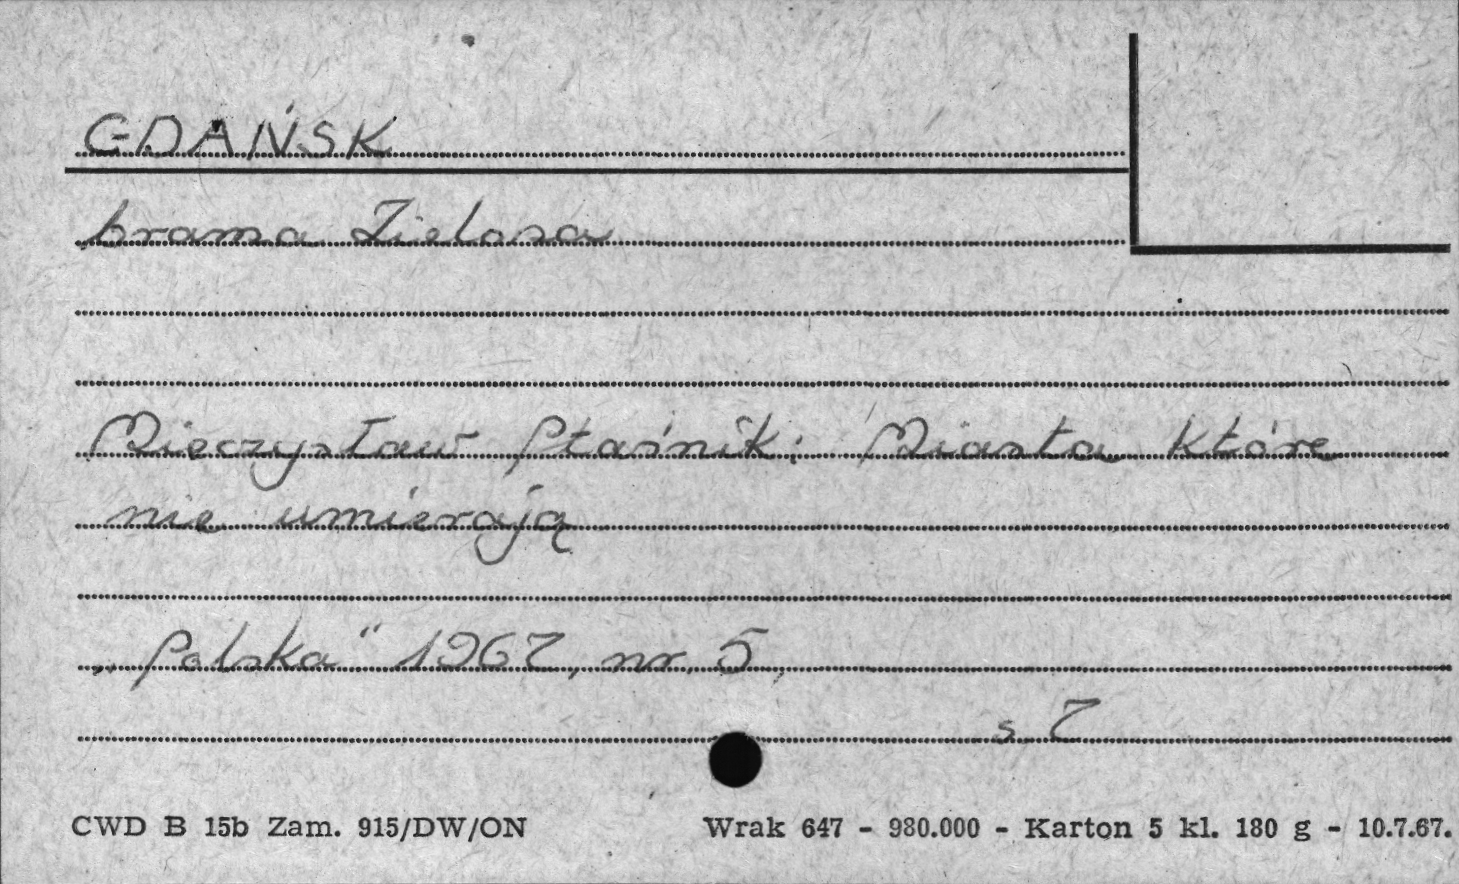 GDAŃSK
brama Zielona
Mieczysław Ptaśnik: Miasta które
nie umierają
„Polska" 1967, nr. 5,
s. 7
CWD B 15b Zam. 915/DW/ON Wrak 647 - 980.000 - Karton 5 kl. 180 g - 10.7.67.